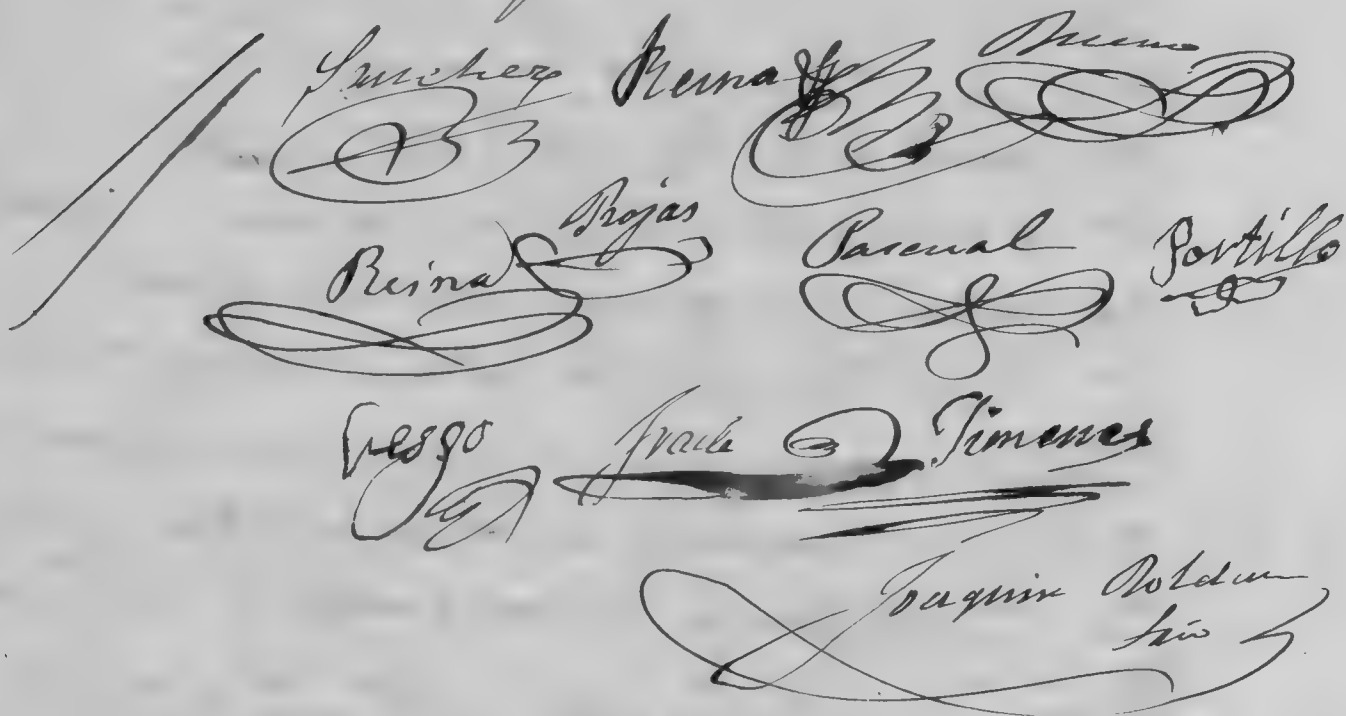 Sanchez Reina Bueno
Reina Rojas Pascual Portillo
Crespo Fraile Jimenes
Joaquin Roldan
Srio